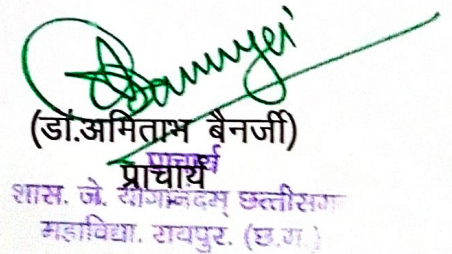 Bannerjei
(डॉ.अमिताभ बैनर्जी)
प्राचार्य
प्राचार्य
शास. जे. योगानंदम् छत्तीसग
महाविद्या. रायपुर. (छ.ग.)